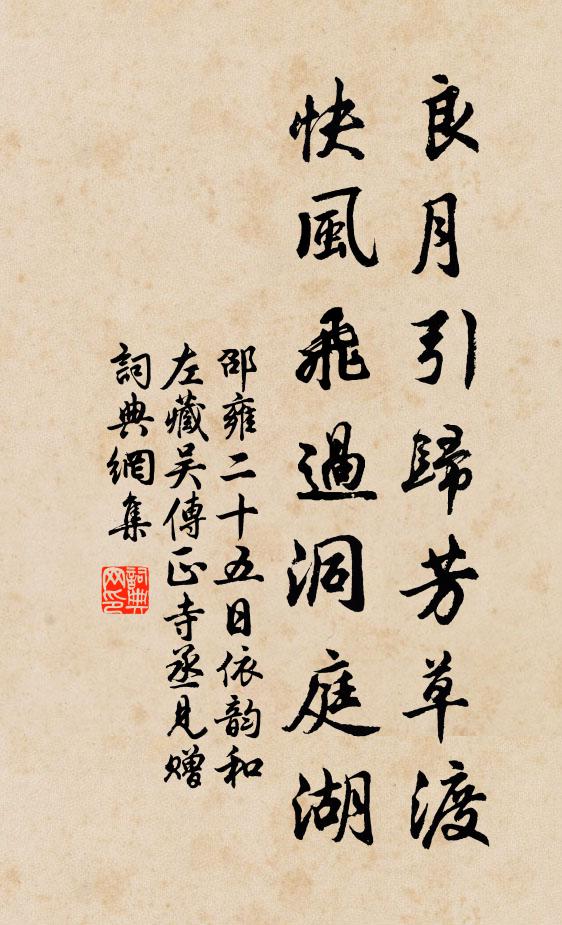 良月引歸芳草渡
快風飛過洞庭湖
邵雍二十五日依韻和
左藏吴傳正寺丞見贈
詞典網集
詞典
网印